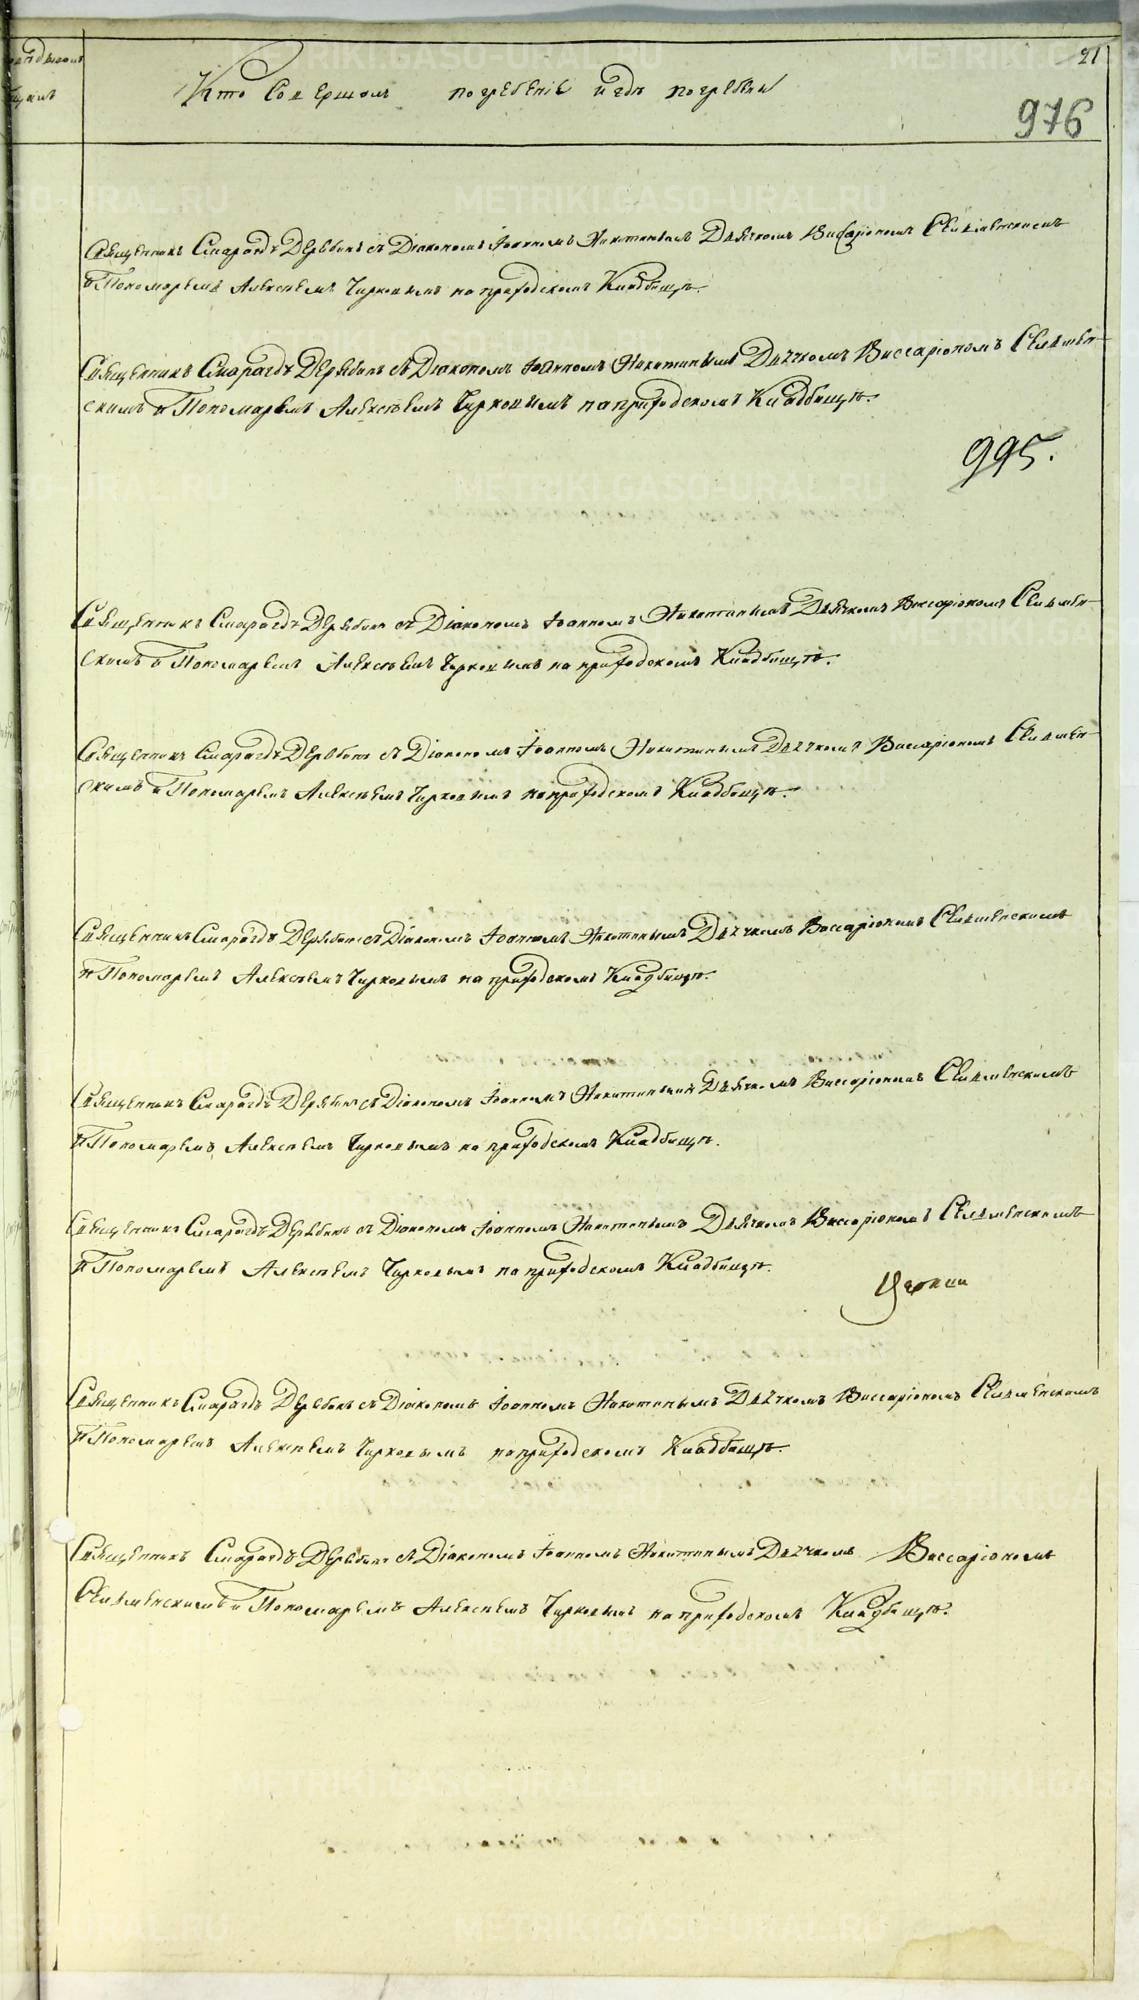 21
Кто совершалъ погребенiе и гдѣ погребены
976
Священникъ Смарагдъ Дерябинъ съ Дiакономъ Iоанномъ Никитинымъ Дьячкомъ Виссарiономъ Селименскимъ
и Пономаремъ Алексѣемъ Чирковымъ на приходскомъ Кладбищѣ.
Священникъ Смарагдъ Дерябинъ съ Дiакономъ Iоанномъ Никитинымъ Дьячкомъ Виссарiономъ Селимен-
скимъ и Пономаремъ Алексѣемъ Чирковымъ на приходскомъ Кладбищѣ.
995.
Священникъ Смарагдъ Дерябинъ съ Дiакономъ Iоанномъ Никитинымъ Дьячкомъ Виссарiономъ Селимен-
скимъ и Пономаремъ Алексѣемъ Чирковымъ на приходскомъ Кладбищѣ.
Священникъ Смарагдъ Дерябинъ съ Дiакономъ Iоанномъ Никитинымъ Дьячкомъ Виссарiономъ Селимен-
скимъ и Пономаремъ Алексѣемъ Чирковымъ на приходскомъ Кладбищѣ.
Священникъ Смарагдъ Дерябинъ съ Дiакономъ Iоанномъ Никитинымъ Дьячкомъ Виссарiономъ Селименскимъ
и Пономаремъ Алексѣемъ Чирковымъ на приходскомъ Кладбищѣ.
Священникъ Смарагдъ Дерябинъ съ Дiакономъ Iоанномъ Никитинымъ Дьячкомъ Виссарiономъ Селименскимъ
и Пономаремъ Алексѣемъ Чирковымъ на приходскомъ Кладбищѣ.
Священникъ Смарагдъ Дерябинъ съ Дiакономъ Iоанномъ Никитинымъ Дьячкомъ Виссарiономъ Селименскимъ
и Пономаремъ Алексѣемъ Чирковымъ на приходскомъ Кладбищѣ.
Священникъ Смарагдъ Дерябинъ съ Дiакономъ Iоанномъ Никитинымъ Дьячкомъ Виссарiономъ Селименскимъ
и Пономаремъ Алексѣемъ Чирковымъ на приходскомъ Кладбищѣ.
Священникъ Смарагдъ Дерябинъ съ Дiакономъ Iоанномъ Никитинымъ Дьячкомъ Виссарiономъ
Селименскимъ и Пономаремъ Алексѣемъ Чирковымъ на приходскомъ Кладбищѣ.
METRIKI.GASO-URAL.RU